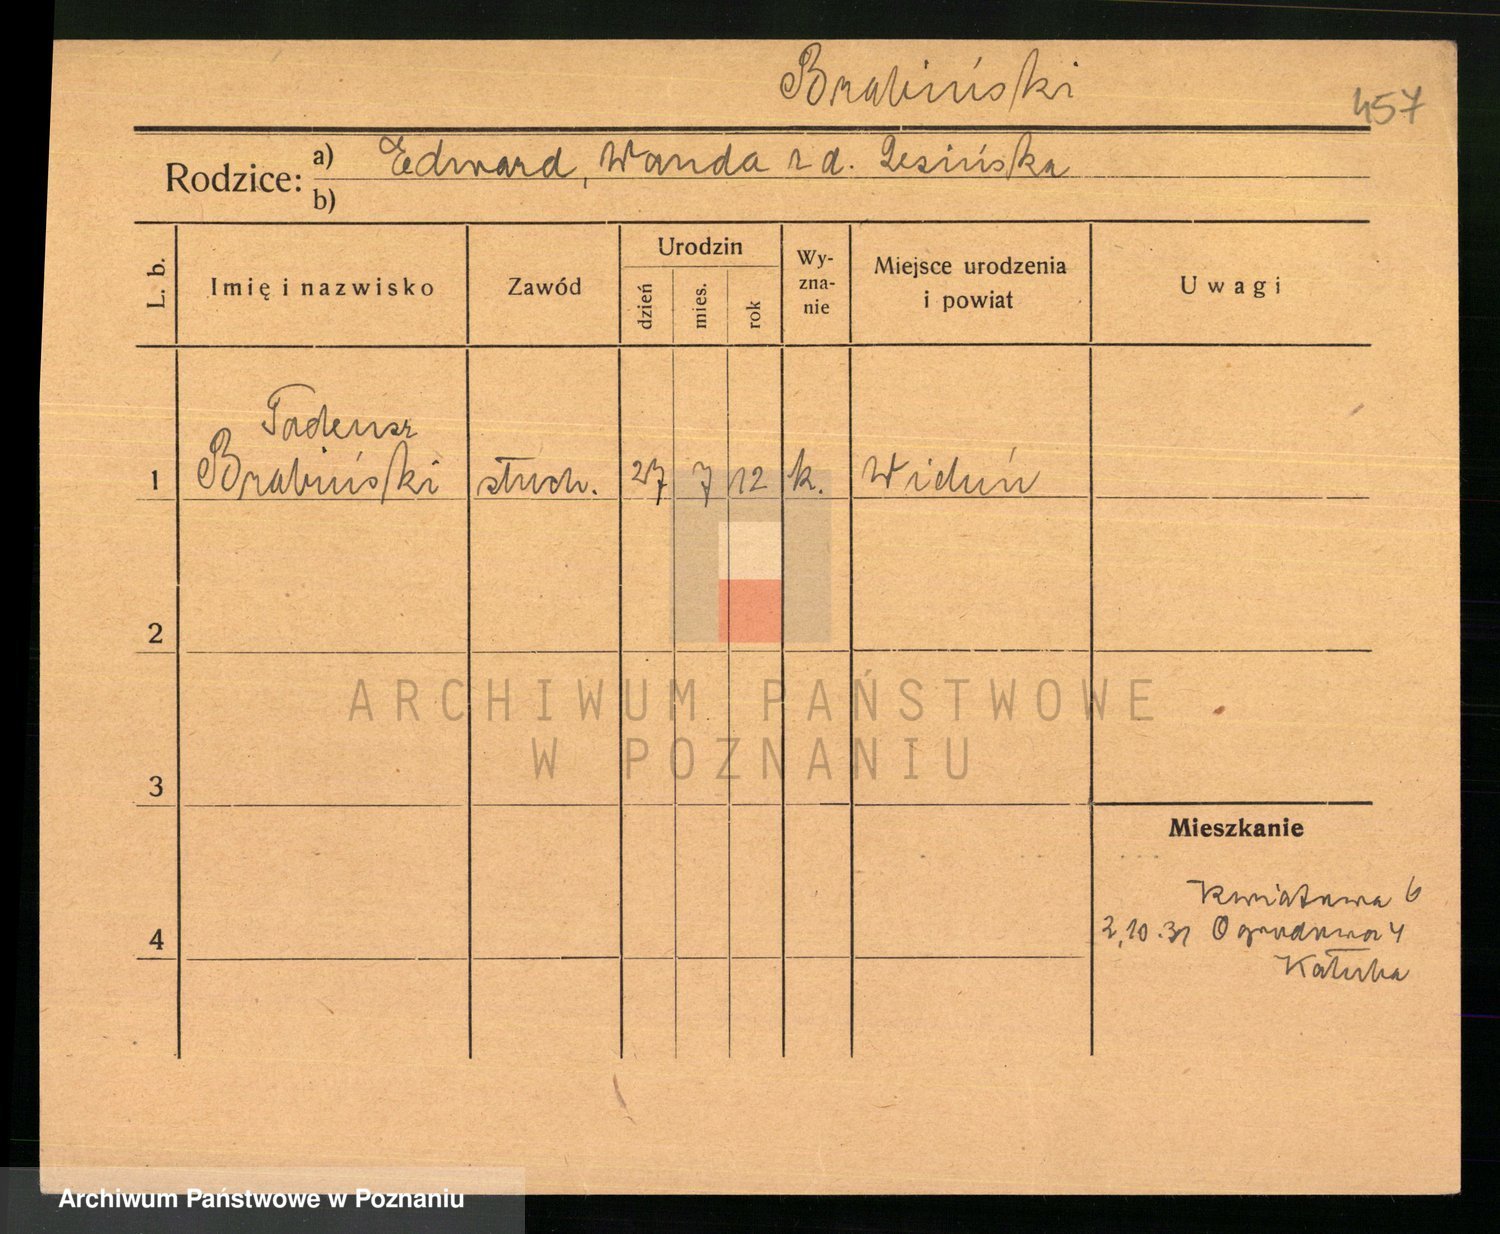 Brabiński
457
Rodzice: a) Edward, Wanda z d. Lesińska
b)
L. b.
Imię i nazwisko
Zawód
Urodzin
dzień
mies.
rok
Wy-
zna-
nie
Miejsce urodzenia
i powiat
Uwagi
Tadeusz
1 Brabiński stuch. 27 7 12 k. Wieluń
2
3
4
Mieszkanie
Kwiatowa 6
2.10.31 Ogrodowa 4
Kałuba
ARCHIWUM PAŃSTWOWE
W POZNANIU
Archiwum Państwowe w Poznaniu